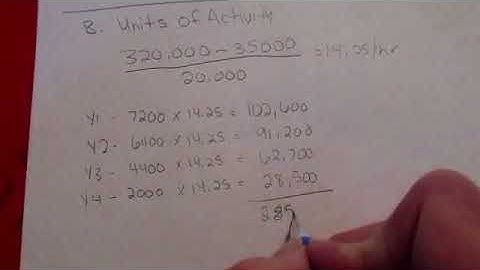 B. Units of Activity
320,000 - 35000
20,000
= 14.25/hr
Y1 - 7200 x 14.25 = 102,600
Y2 - 6400 x 14.25 = 91,200
Y3 - 4400 x 14.25 = 62,700
Y4 - 2000 x 14.25 = 28,500
285